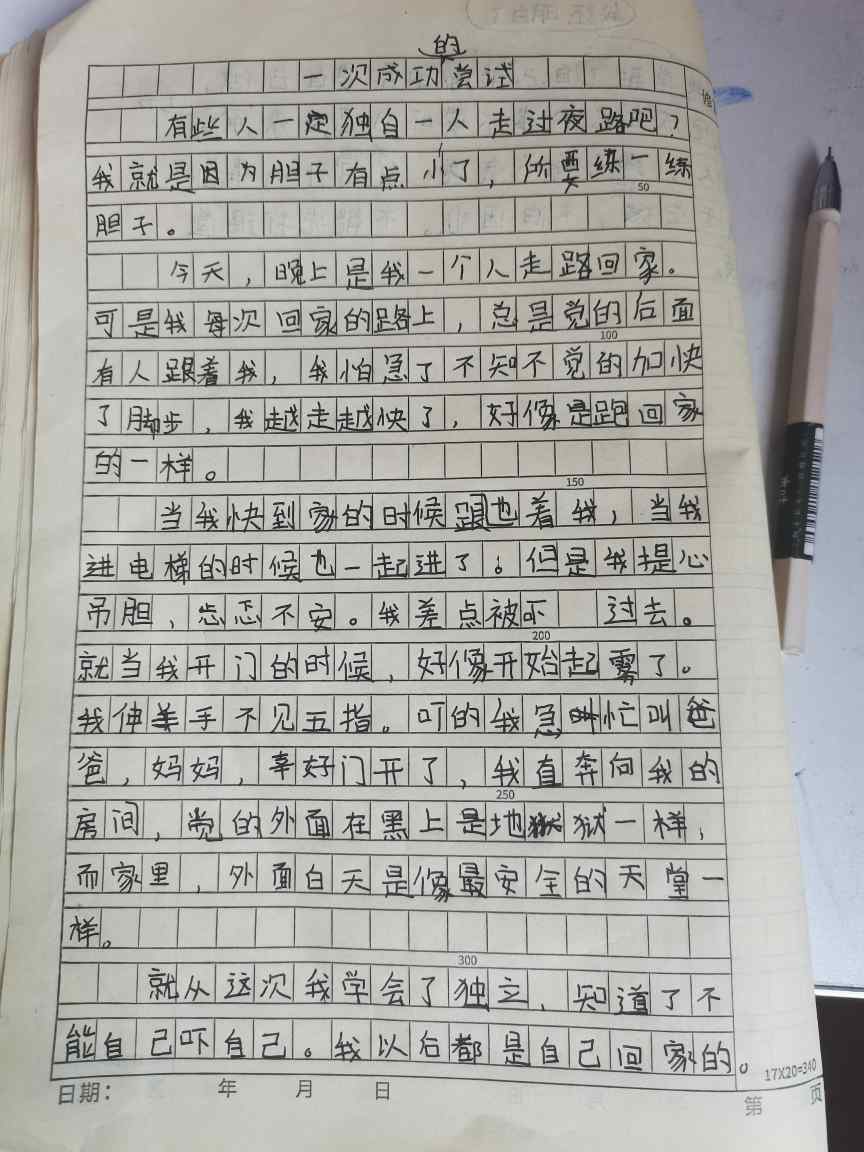 一次成功的尝试
有些人一定独自一人走过夜路吧？
我就是因为胆子有点小了，所要练一练
50
胆子。
今天，晚上是我一个人走路回家。
可是我每次回家的路上，总是觉的后面
100
有人跟着我，我怕急了不知不觉的加快
了脚步，我越走越快了，好像是跑回家
的一样。
150
当我快到家的时候跟也着我，当我
进电梯的时候也一起进了。但是我提心
吊胆，忐忑不安。我差点被吓 过去。
200
就当我开门的时候，好像开始起雾了。
我伸手不见五指。叮的我急忙叫爸
爸，妈妈，幸好门开了，我直奔向我的
250
房间，觉的外面在黑上是地狱一样，
而家里，外面白天是像最安全的天堂一
样。
300
就从这次我学会了独立，知道了不
能自己吓自己。我以后都是自己回家的。
17X20=340
日期： 年 月 日
第 页